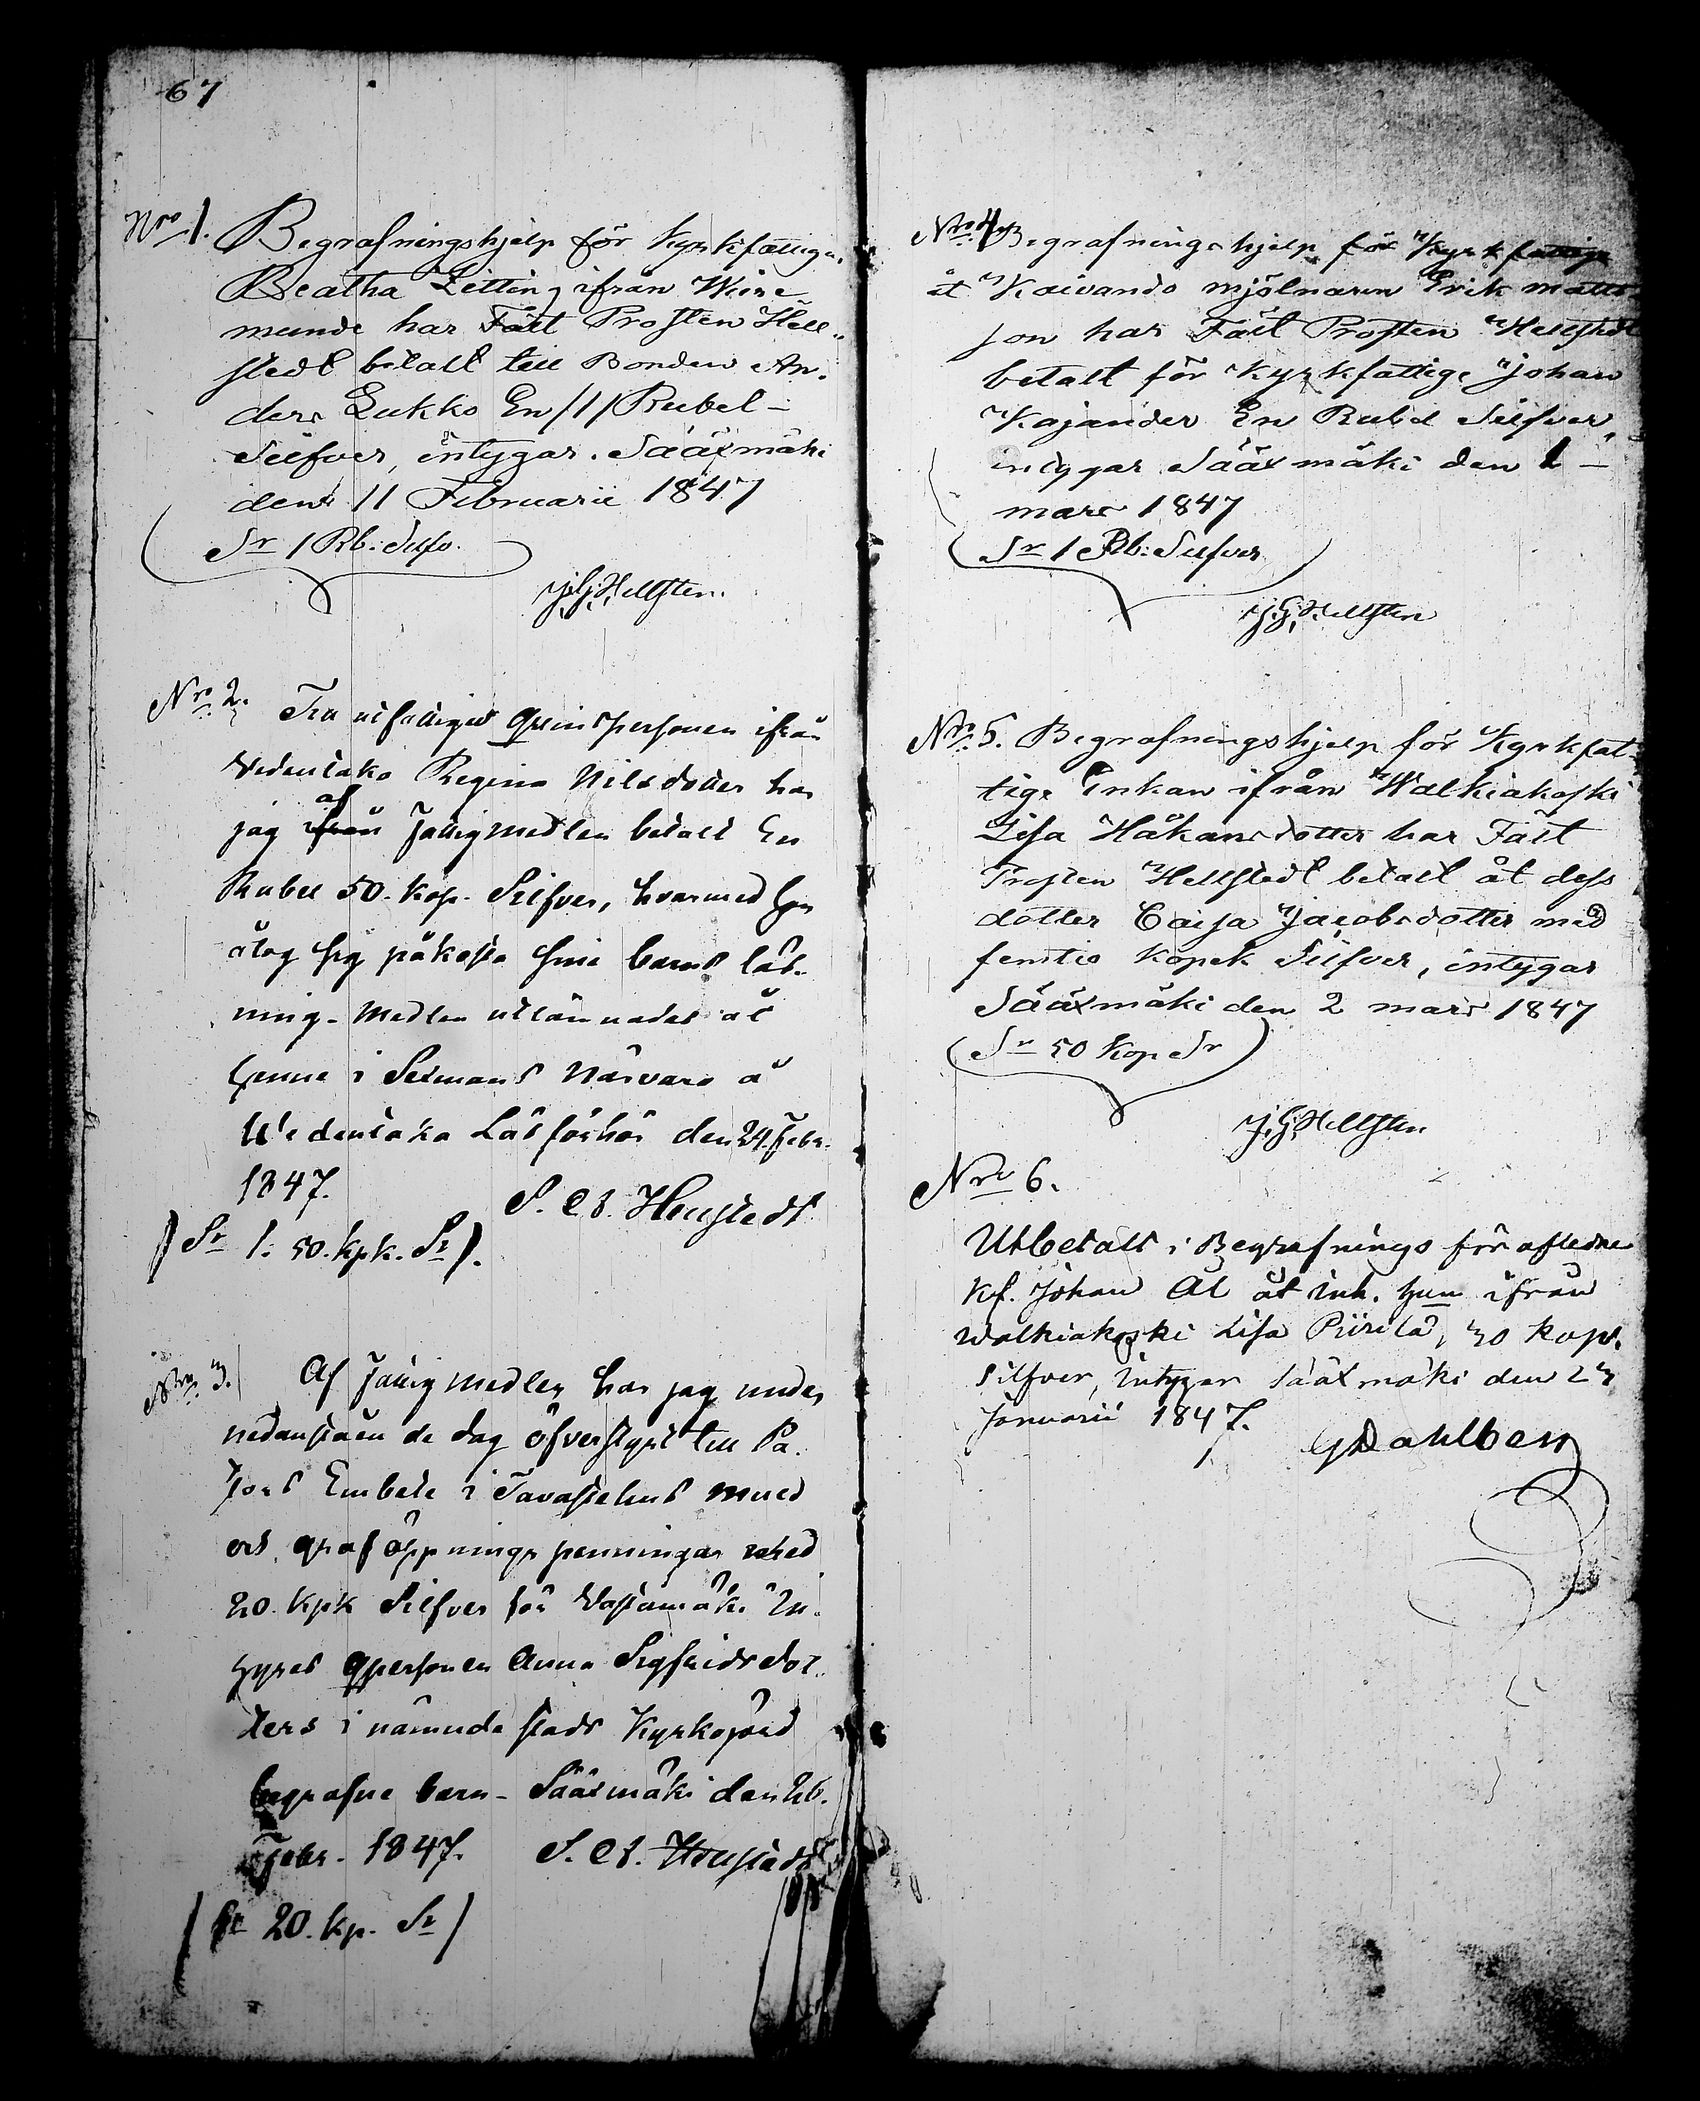 67
Nro 1. Begrafningshjelp för Kyrkfattige
Beatha Zitting ifrån Wuore
munde har Fält Prosten Hell-
stedt betalt till Bonden An-
ders Lukko En /1/ Rubel -
Silfver, intygar. Sääxmäki
den 11 Februarii 1847
Sr 1 Rb: Silfv.
J: G: Hellsten.
Nro 2. utfattiga Qvinspersonen ifrån
Wedentaka Regina Nilsdotter har
af
jag ifrån Fattigmedlen betalt En
Rubel 50. Kop. Silfver, hvarmed hon
åtog sig påkosta sina barns läs-
ning. Medlen utlämnades åt
henne i Sexmans närvaro å
Wedentaka Läsförhör den 24. Febr.
1847. S. Ad. Hellstedt
/ Sr 1. 50. kpk. Sr /.
Nro 3. Af Fattigmedlen har jag under
nedanstående dag öfverstyrt till Pa-
stors Embete i Tavastehus
och graföppnings penningar med
20. Kpk Silfver för Wastamäki In-
hyses qpersonen Anna Sigfridsdot-
ters i nämnde stads Kyrkogård
begrafne barn - Sääxmäki den 26.
Febr. 1847. S. Ad. Hellstedt
/ Sr 20. kp. Sr /
Nro 4. Begrafningshjelp för Kyrkfattige
åt Kaivando mjölnaren Erik matts-
son har Fält Prosten Hellstedt
betalt för Kyrkfattige Johan
Kajander En Rubel Silfver,
intygar Sääxmäki den 1 -
mars 1847
Sr 1 Rb: Silfver
J: G: Hellsten
Nro 5. Begrafningshjelp för Kyrkfat-
tige Enkan ifrån Walkiakoski
Lisa Håkansdotter har Fält
Prosten Hellstedt betalt åt dess
dotter Caisa Jacobsdotter med
femtio Kopek Silfver, intygar
Sääxmäki den 2 mars 1847
Sr 50 Kop Sr
J: G: Hellsten
Nro 6.
Utbetalt i Begrafnings för afledne
Kf. Johan Al åt inh. hun ifrån
walkiakoski Lisa Piirilä, 30 kop.
Silfver, intygar Sääxmäki den 23
Januarii 1847.
G Dahlberg